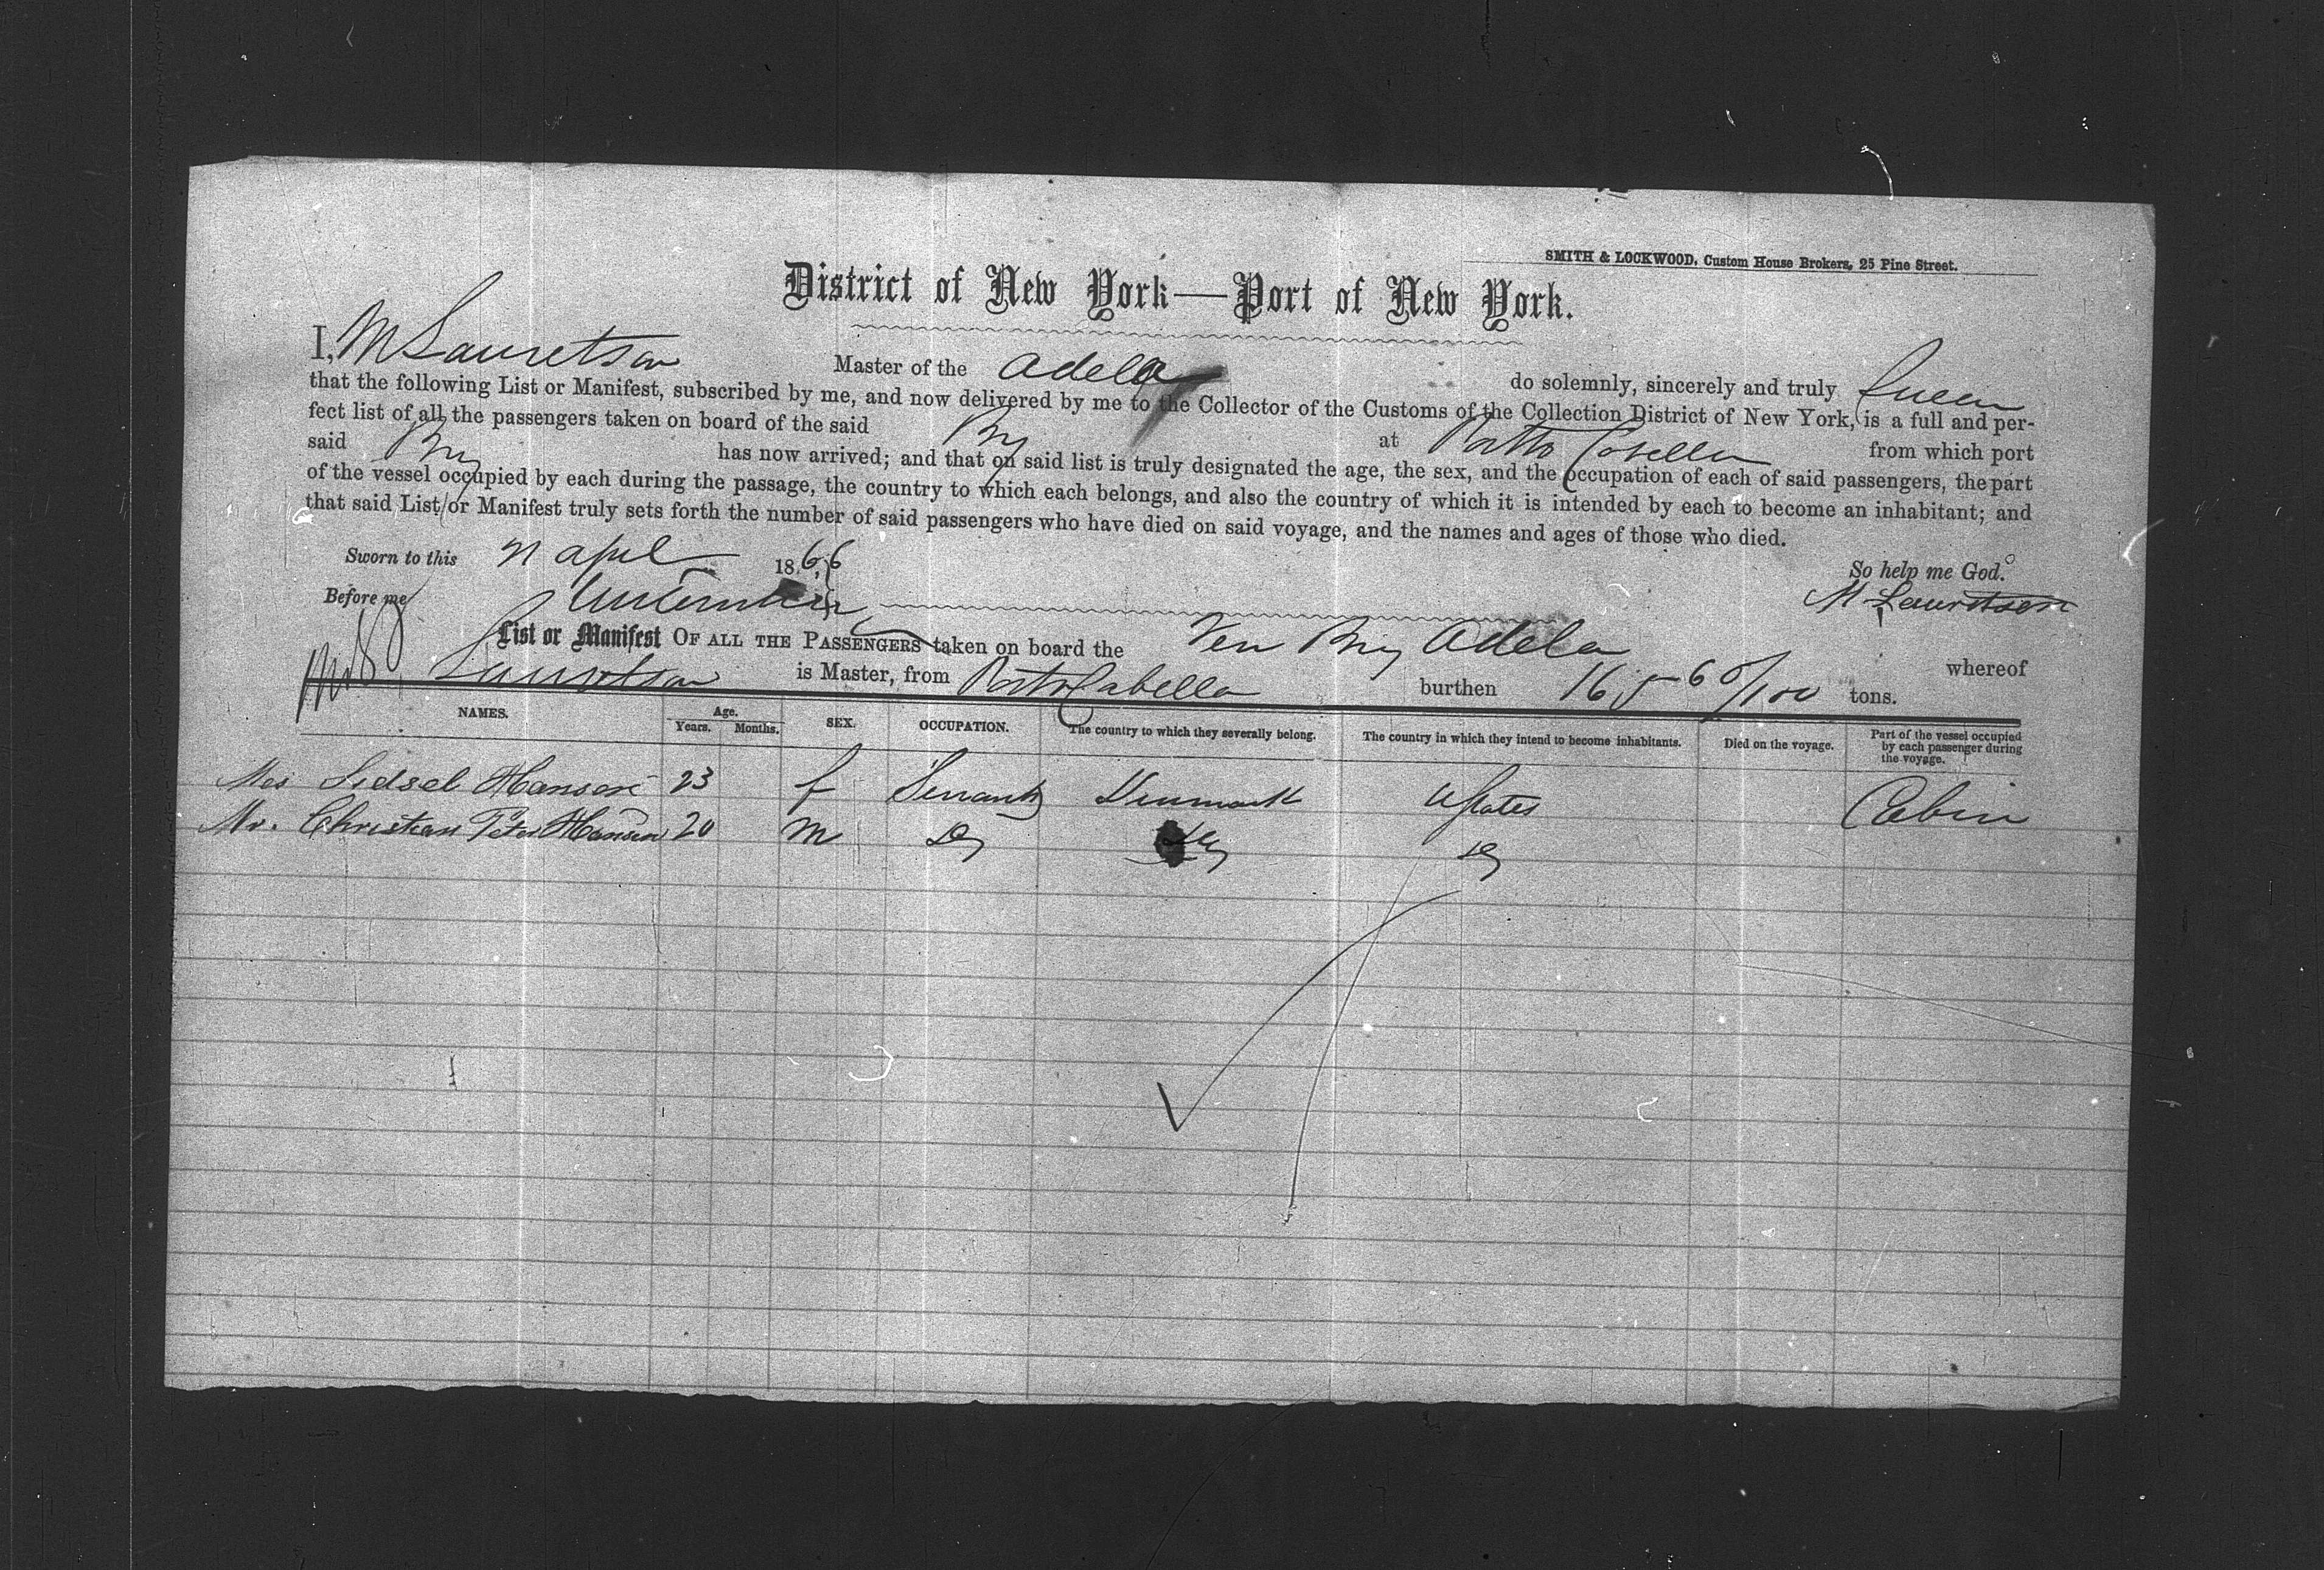 SMITH & LOCKWOOD, Custom House Brokers, 25 Pine Street.
District of New York—Port of New York.
I, M Lauretson Master of the Adela do solemnly, sincerely and truly swear
that the following List or Manifest, subscribed by me, and now delivered by me to the Collector of the Customs of the Collection District of New York, is a full and per-
fect list of all the passengers taken on board of the said Brig at Porto Cabello from which port
said Brig has now arrived; and that on said list is truly designated the age, the sex, and the occupation of each of said passengers, the part
of the vessel occupied by each during the passage, the country to which each belongs, and also the country of which it is intended by each to become an inhabitant; and
that said List or Manifest truly sets forth the number of said passengers who have died on said voyage, and the names and ages of those who died.
Sworn to this April 1866 So help me God.
Before me M Lauretson
List or Manifest OF ALL THE PASSENGERS taken on board the Ven Brig Adela whereof
Lauretson is Master, from Porto Cabello burthen 165 60/100 tons.
NAMES. Age. Years. Months. SEX. OCCUPATION. The country to which they severally belong. The country in which they intend to become inhabitants. Died on the voyage. Part of the vessel occupied by each passenger during the voyage.
Mrs Sidsel Hansen 23 f Servant Denmark UStates Cabin
Mr. Christian Peter Hansen 20 m Do Do Do